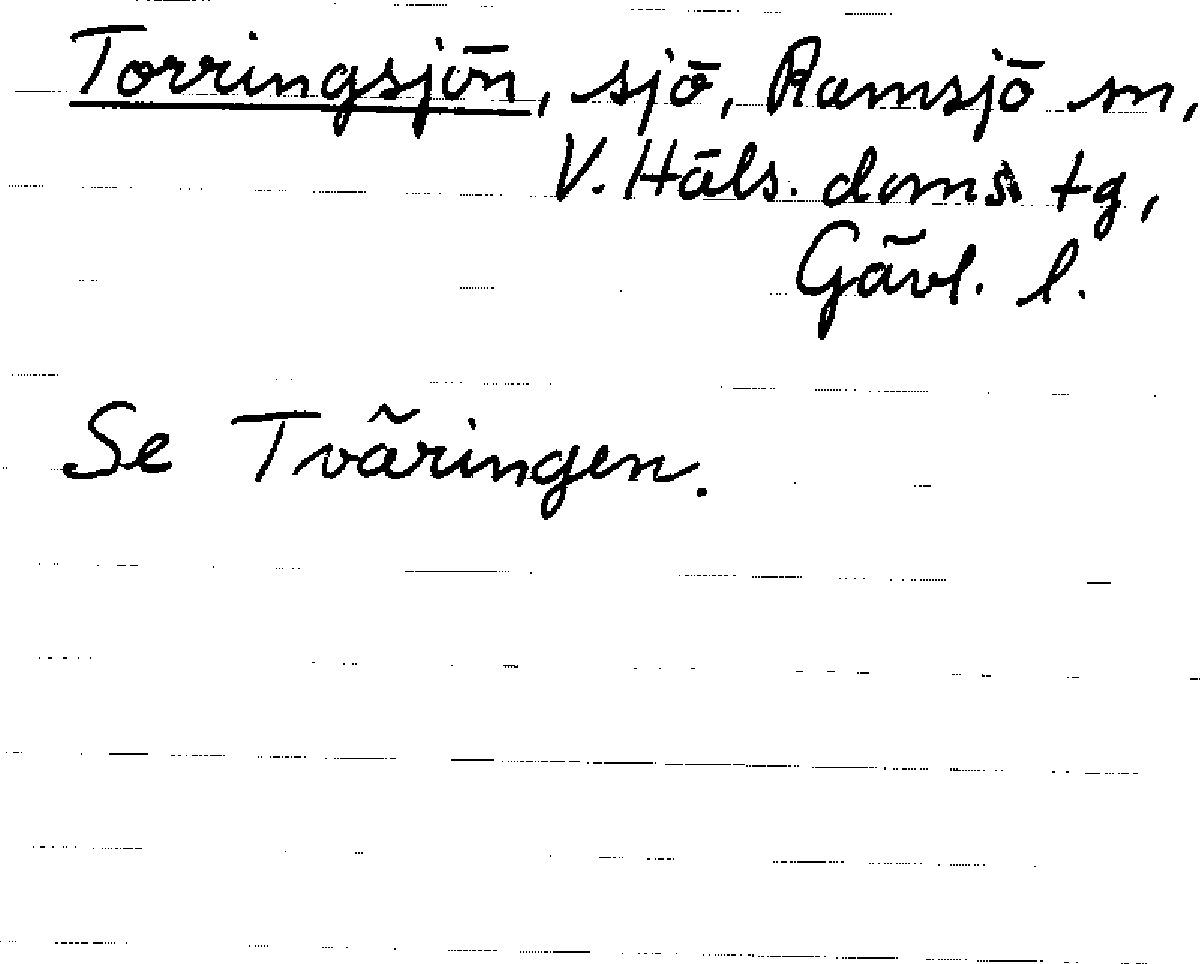 Torringsjön, sjö, Ramsjö sn,
V. Häls. doms tg,
Gävl. l.
Se Tväringen.